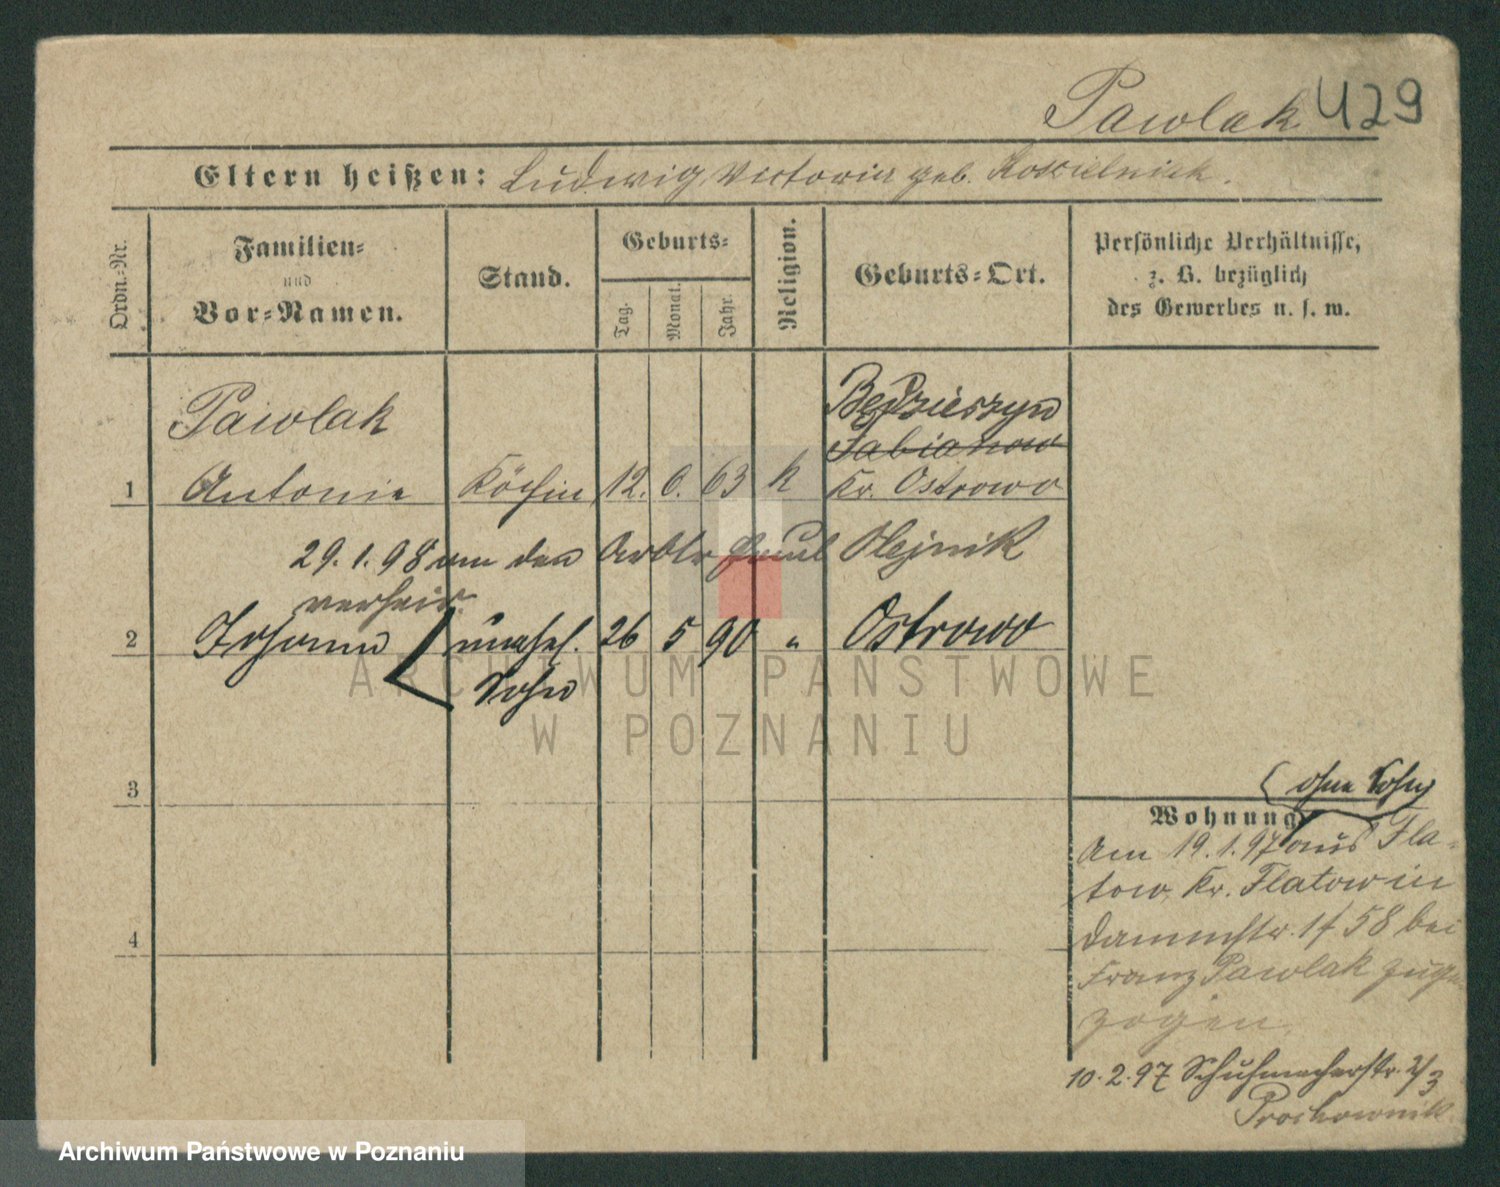 Pawlak 429
Eltern heißen: Ludwig, Victoria geb. Koscielniak.
Ordn.-Nr.
Familien-
und
Vor-Namen.
Stand.
Geburts-
Tag.
Monat.
Jahr.
Religion.
Geburts-Ort.
Persönliche Verhältnisse,
z. B. bezüglich
des Gewerbes u. s. w.
Pawlak
Będzieszyn
Fabianow
1 Antonie Köchin 12. 6. 63 k Kr. Ostrowo
29.1.98 an den Arbtr Paul Olejnik
verheir.
2 Johann unehel. 26 5 90 " Ostrowo
Sohn
ARCHIWUM PAŃSTWOWE
W POZNANIU
3
4
(ohne Sohn)
Wohnung
Am 19.1.97 aus Fla-
tow, Kr. Flatow in
Dammstr. 58 bei
Franz Pawlak zuge-
zogen.
10.2.97 Schuhmacherstr. 2/3
Prochownik
Archiwum Państwowe w Poznaniu